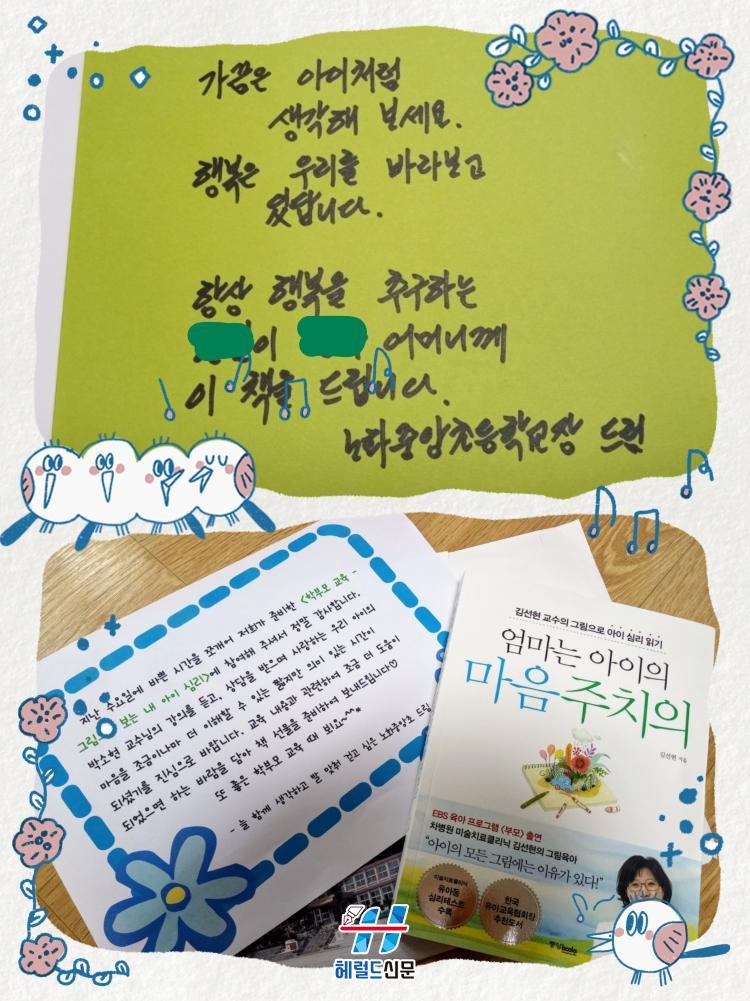 가끔은 아이처럼
생각해 보세요.
행복은 우리를 바라보고
있답니다.
항상 행복을 추구하는
이 어머니께
이 책을 드립니다.
노화중앙초등학교장 드림
지난 수요일에 바쁜 시간을 쪼개어 저희가 준비한 <학부모 교육 -
그림으로 보는 내 아이 심리>에 참여해 주셔서 정말 감사합니다.
박소현 교수님의 강의를 듣고, 상담을 받으며 사랑하는 우리 아이의
마음을 조금이나마 더 이해할 수 있는 짧지만 의미 있는 시간이
되셨기를 진심으로 바랍니다. 교육 내용과 관련하여 조금 더 도움이
되었으면 하는 바람을 담아 책 선물을 준비하여 보내드립니다♡
또 좋은 학부모 교육 때 봬요~^^*
- 늘 함께 생각하고 발 맞춰 걷고 싶은 노화중앙초 드림
김선현 교수의 그림으로 아이 심리 읽기
엄마는 아이의
마음 주치의
김선현 지음
EBS 육아 프로그램 〈부모〉 출연
차병원 미술치료클리닉 김선현의 그림육아
“아이의 모든 그림에는 이유가 있다!”
미술치료클리닉
유아동
심리테스트
수록
한국
유아교육협회장
추천도서
중앙books
헤럴드신문